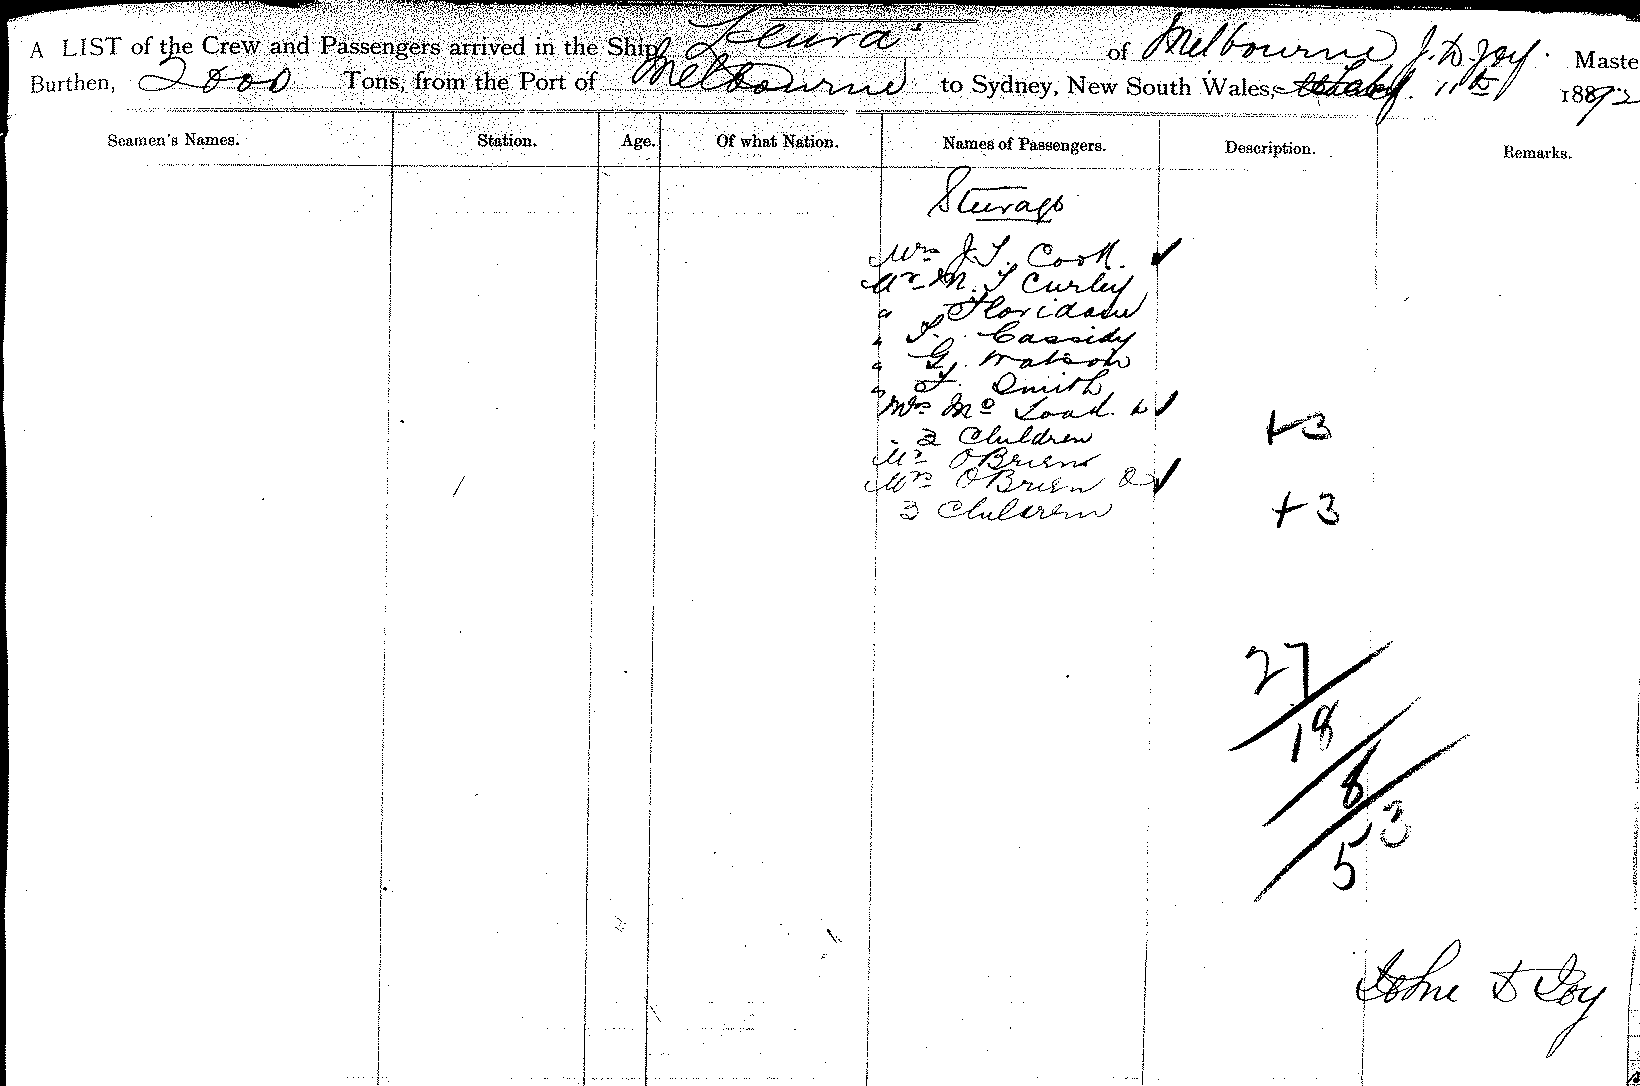 A LIST of the Crew and Passengers arrived in the Ship Leura of Melbourne J. D. Joy. Maste
Burthen, 2000 Tons, from the Port of Melbourne to Sydney, New South Wales, 11th 1892
Seamen's Names. Station. Age. Of what Nation. Names of Passengers. Description. Remarks.
Steerage
Mrs J.T. Cook. ✓
Mr M. T Curley
" 
" T. Cassidy
" G. Watson
" T. Smith
Mrs Mc Load. ✓
2 Children +3
Mr OBrien
Mrs OBrien ✓
3 Children +3
27
18
8
3
5
John D Joy